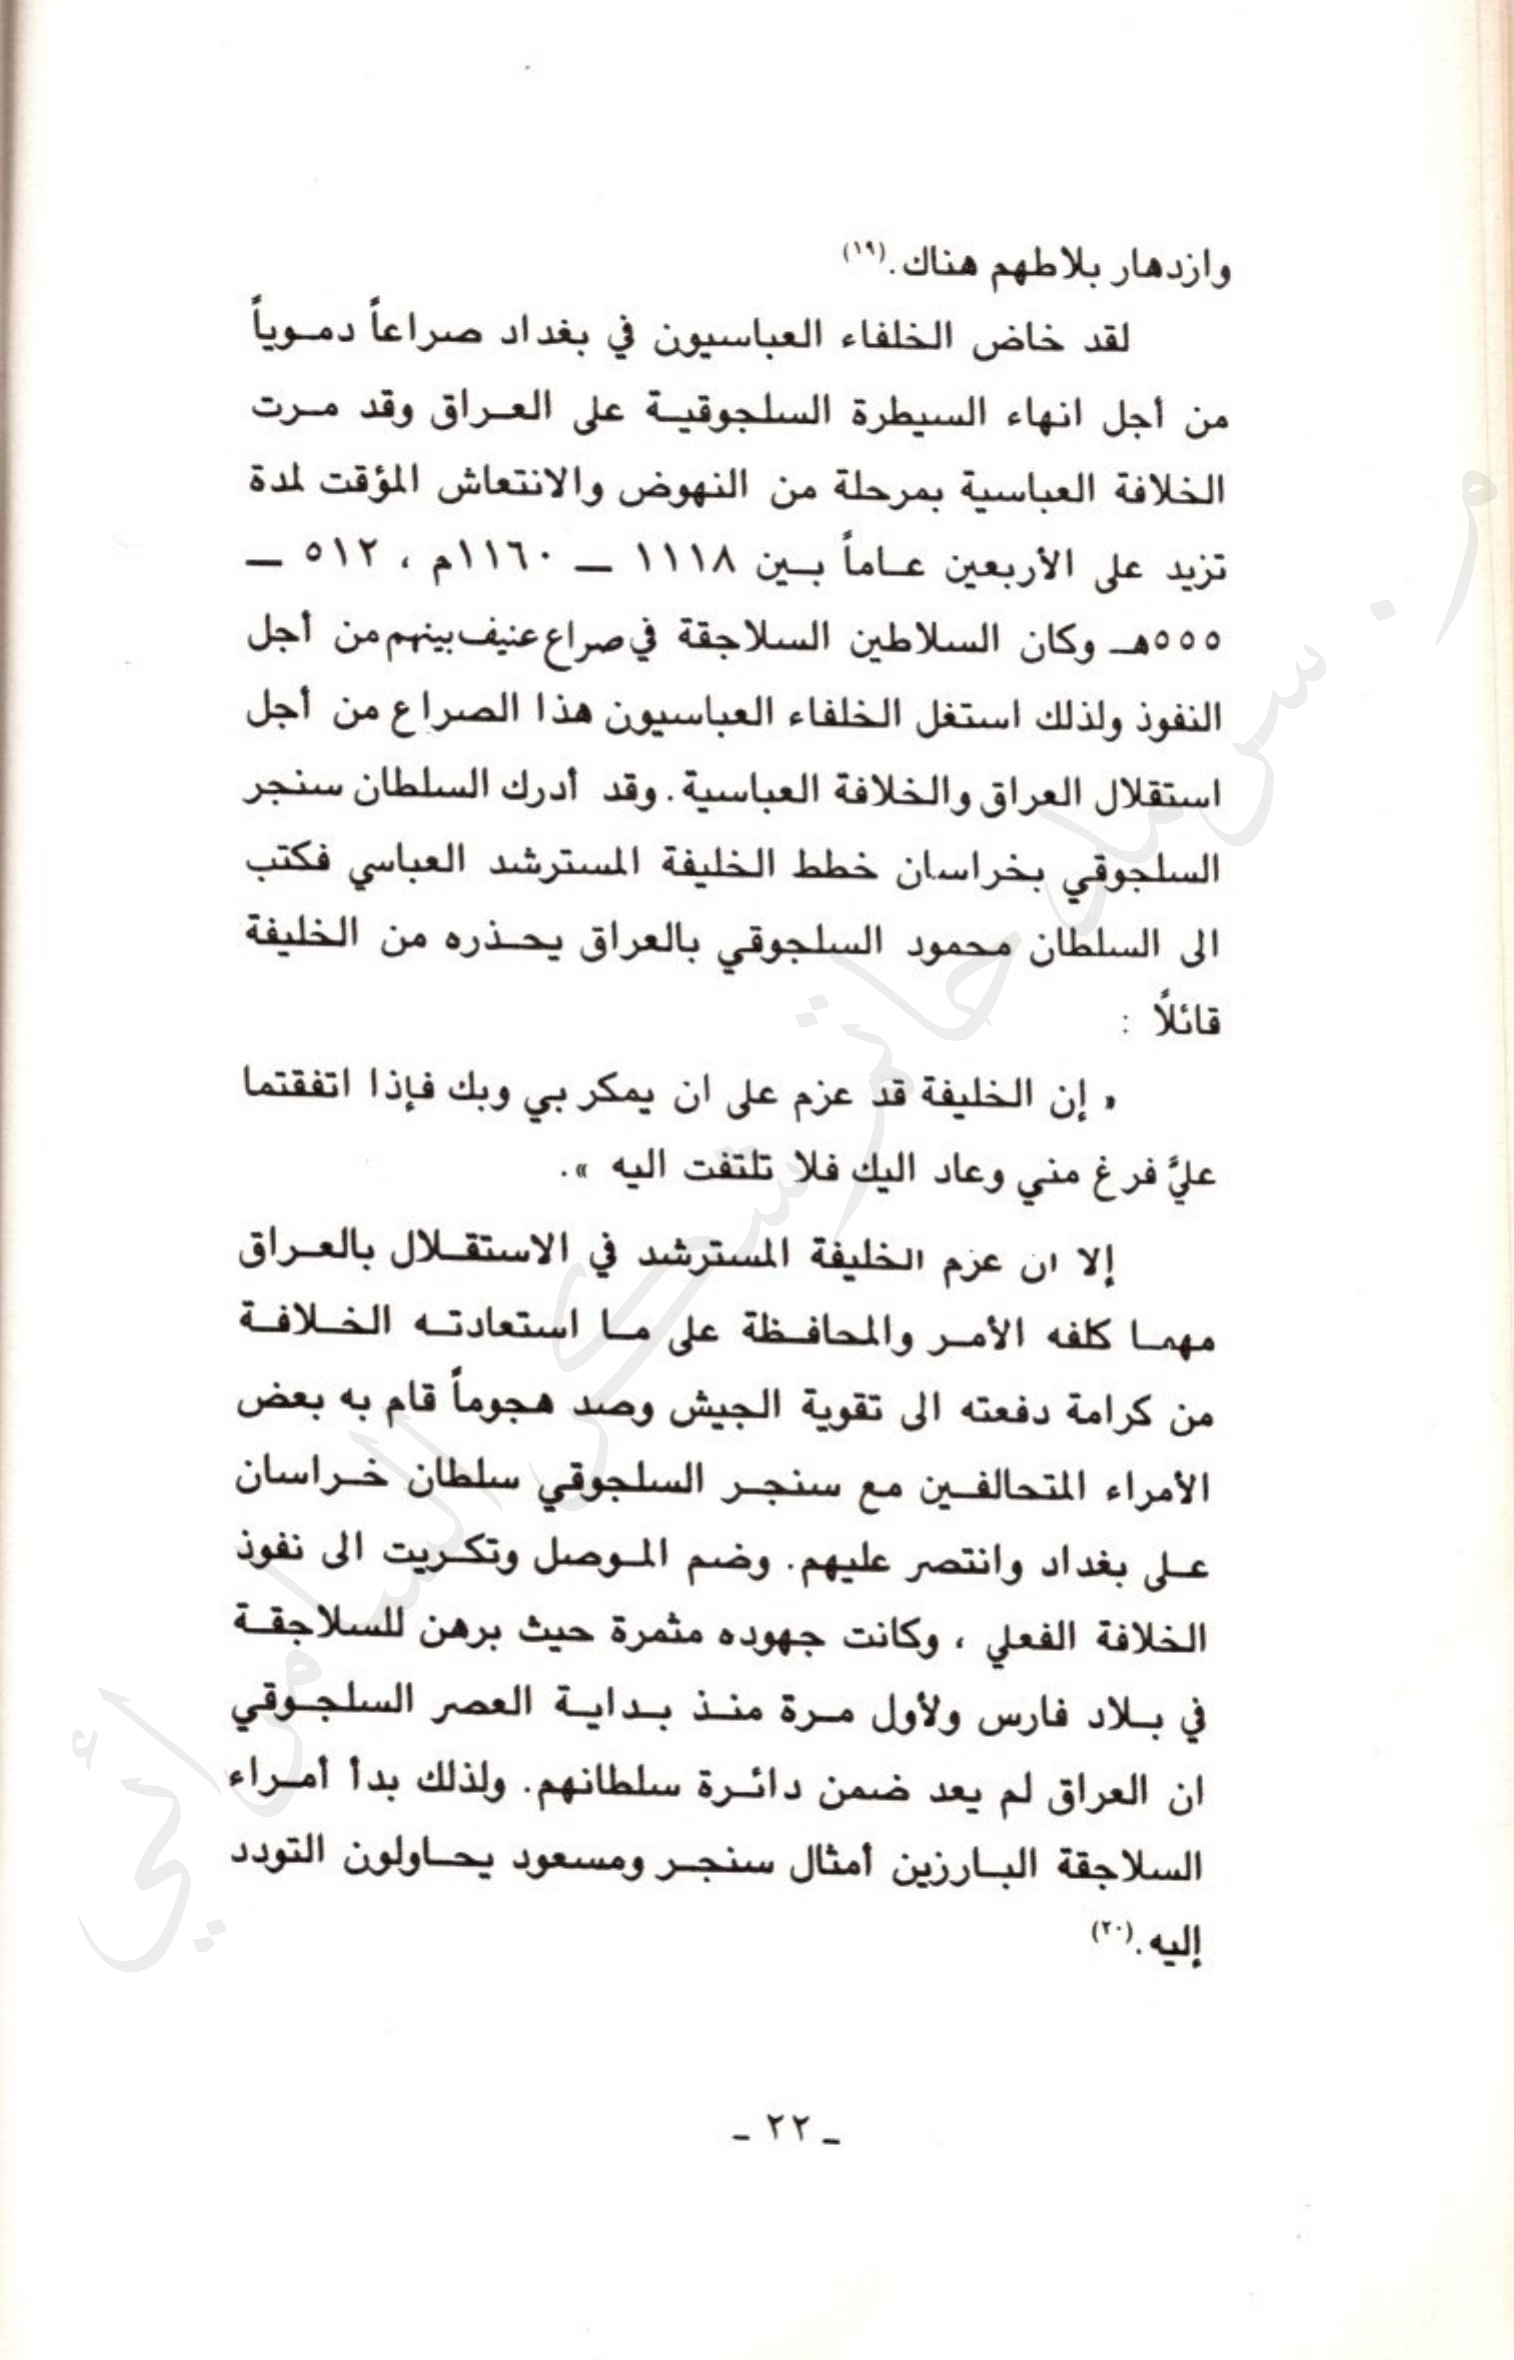 وازدهار بلاطهم هناك.(١٩)
لقد خاض الخلفاء العباسيون في بغداد صراعاً دموياً
من أجل انهاء السيطرة السلجوقية على العراق وقد مرت
الخلافة العباسية بمرحلة من النهوض والانتعاش المؤقت لمدة
تزيد على الأربعين عاماً بين ١١١٨ ــ ١١٦٠م ، ٥١٢ ــ
٥٥٥هـ وكان السلاطين السلاجقة في صراع عنيف بينهم من أجل
النفوذ ولذلك استغل الخلفاء العباسيون هذا الصراع من أجل
استقلال العراق والخلافة العباسية. وقد أدرك السلطان سنجر
السلجوقي بخراسان خطط الخليفة المسترشد العباسي فكتب
الى السلطان محمود السلجوقي بالعراق يحذره من الخليفة
قائلاً :
« إن الخليفة قد عزم على ان يمكر بي وبك فإذا اتفقتما
عليَّ فرغ مني وعاد اليك فلا تلتفت اليه ».
إلا ان عزم الخليفة المسترشد في الاستقلال بالعراق
مهما كلفه الأمر والمحافظة على ما استعادته الخلافة
من كرامة دفعته الى تقوية الجيش وصد هجوماً قام به بعض
الأمراء المتحالفين مع سنجر السلجوقي سلطان خراسان
على بغداد وانتصر عليهم. وضم الموصل وتكريت الى نفوذ
الخلافة الفعلي ، وكانت جهوده مثمرة حيث برهن للسلاجقة
في بلاد فارس ولأول مرة منذ بداية العصر السلجوقي
ان العراق لم يعد ضمن دائرة سلطانهم. ولذلك بدأ أمراء
السلاجقة البارزين أمثال سنجر ومسعود يحاولون التودد
إليه.(٢٠)
ـ ٢٢ ـ